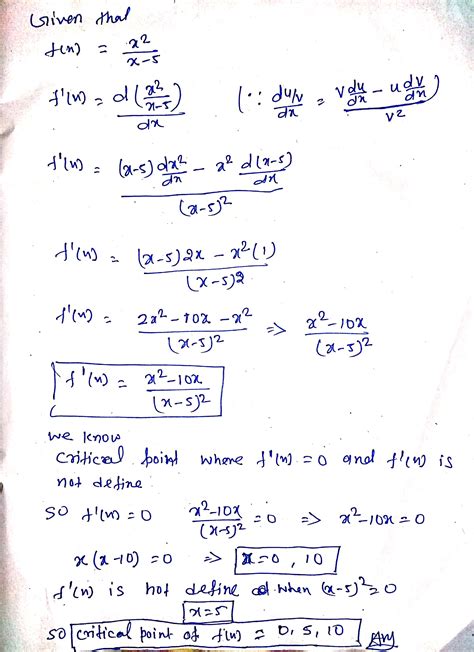 Given that
f(x) = x²/(x-5)
f'(x) = d(x²/(x-5))/dx (∵ d(u/v)/dx = (v du/dx - u dv/dx)/v²)
f'(x) = ((x-5) dx²/dx - x² d(x-5)/dx)/(x-5)²
f'(x) = ((x-5)2x - x²(1))/(x-5)2
f'(x) = (2x²-10x-x²)/(x-5)² => (x²-10x)/(x-5)²
f'(x) = (x²-10x)/(x-5)²
we know
critical point where f'(x) = 0 and f'(x) is
not define
so f'(x) = 0 (x²-10x)/(x-5)² = 0 => x²-10x = 0
x(x-10) = 0 => x=0, 10
f'(x) is not define when (x-5)² = 0
x=5
so critical point of f(x) = 0, 5, 10 Ans